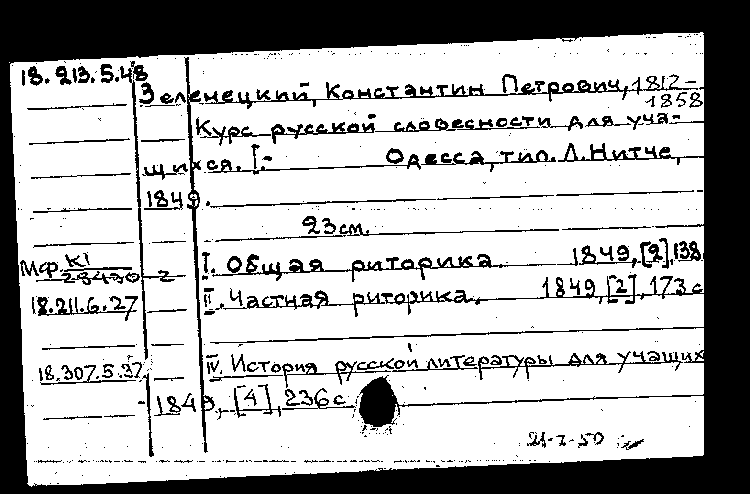 18.213.5.48
Зеленецкий, Константин Петрович, 1812-
1858
Курс русской словесности для уча-
щихся. I.- Одесса, тип. Л. Нитче,
1849.
23 см.
Мф К1 I. Общая риторика. 1849, [2], 138
23430-2
18.211.6.27 II. Частная риторика. 1849, [2], 173 с
18.307.5.37 IV. История русской литературы для учащих
1849, [4], 236 с
21-X-50